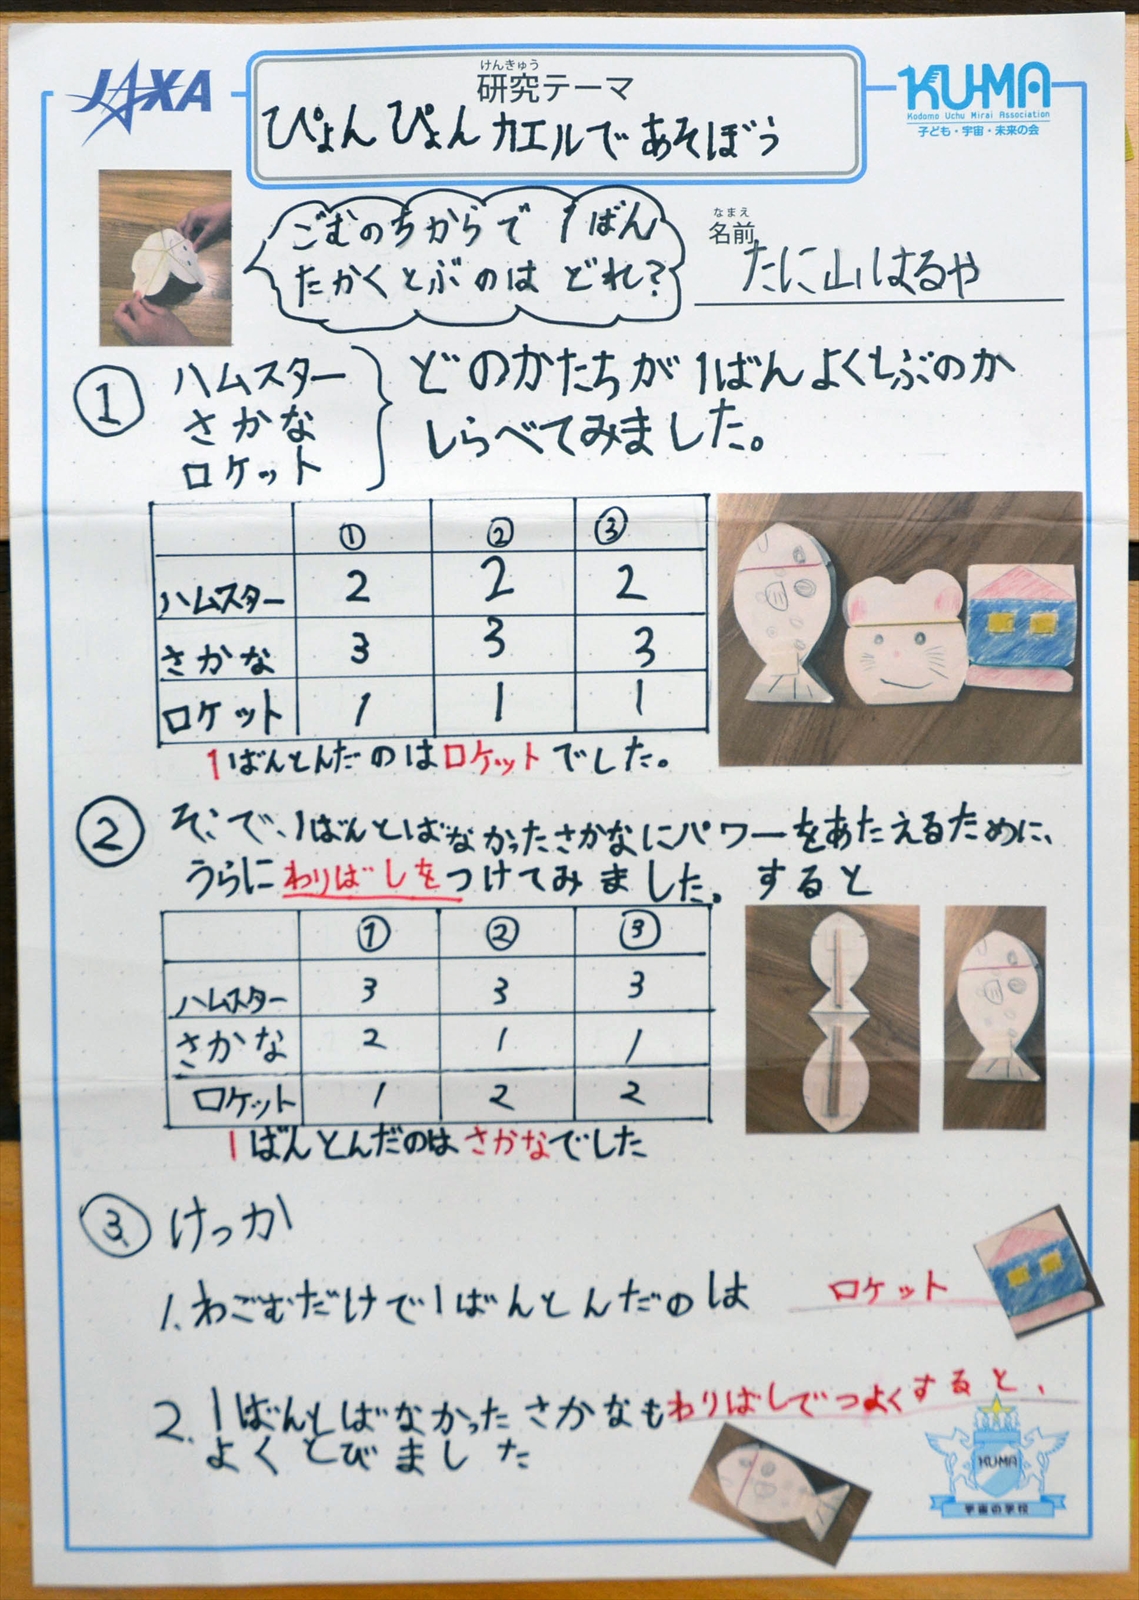 JAXA
けんきゅう
研究テーマ
ぴょんぴょんカエルであそぼう
KU-MA
Kodomo Uchu Mirai Association
子ども・宇宙・未来の会
ごむのちからで1ばん
たかくとぶのは どれ?
なまえ
名前
たに山はるや
①
ハムスター
さかな
ロケット
どのかたちが1ばんよくとぶのか
しらべてみました。
① ② ③
ハムスター 2 2 2
さかな 3 3 3
ロケット 1 1 1
1ばんとんだのはロケットでした。
② そこで、1ばんとばなかったさかなにパワーをあたえるために、
うらにわりばしをつけてみました。すると
① ② ③
ハムスター 3 3 3
さかな 2 1 1
ロケット 1 2 2
1ばんとんだのはさかなでした
③ けっか
1. わごむだけで1ばんとんだのは ロケット
2. 1ばんとばなかったさかなもわりばしでつよくすると、
よくとびました
KUMA
宇宙の学校